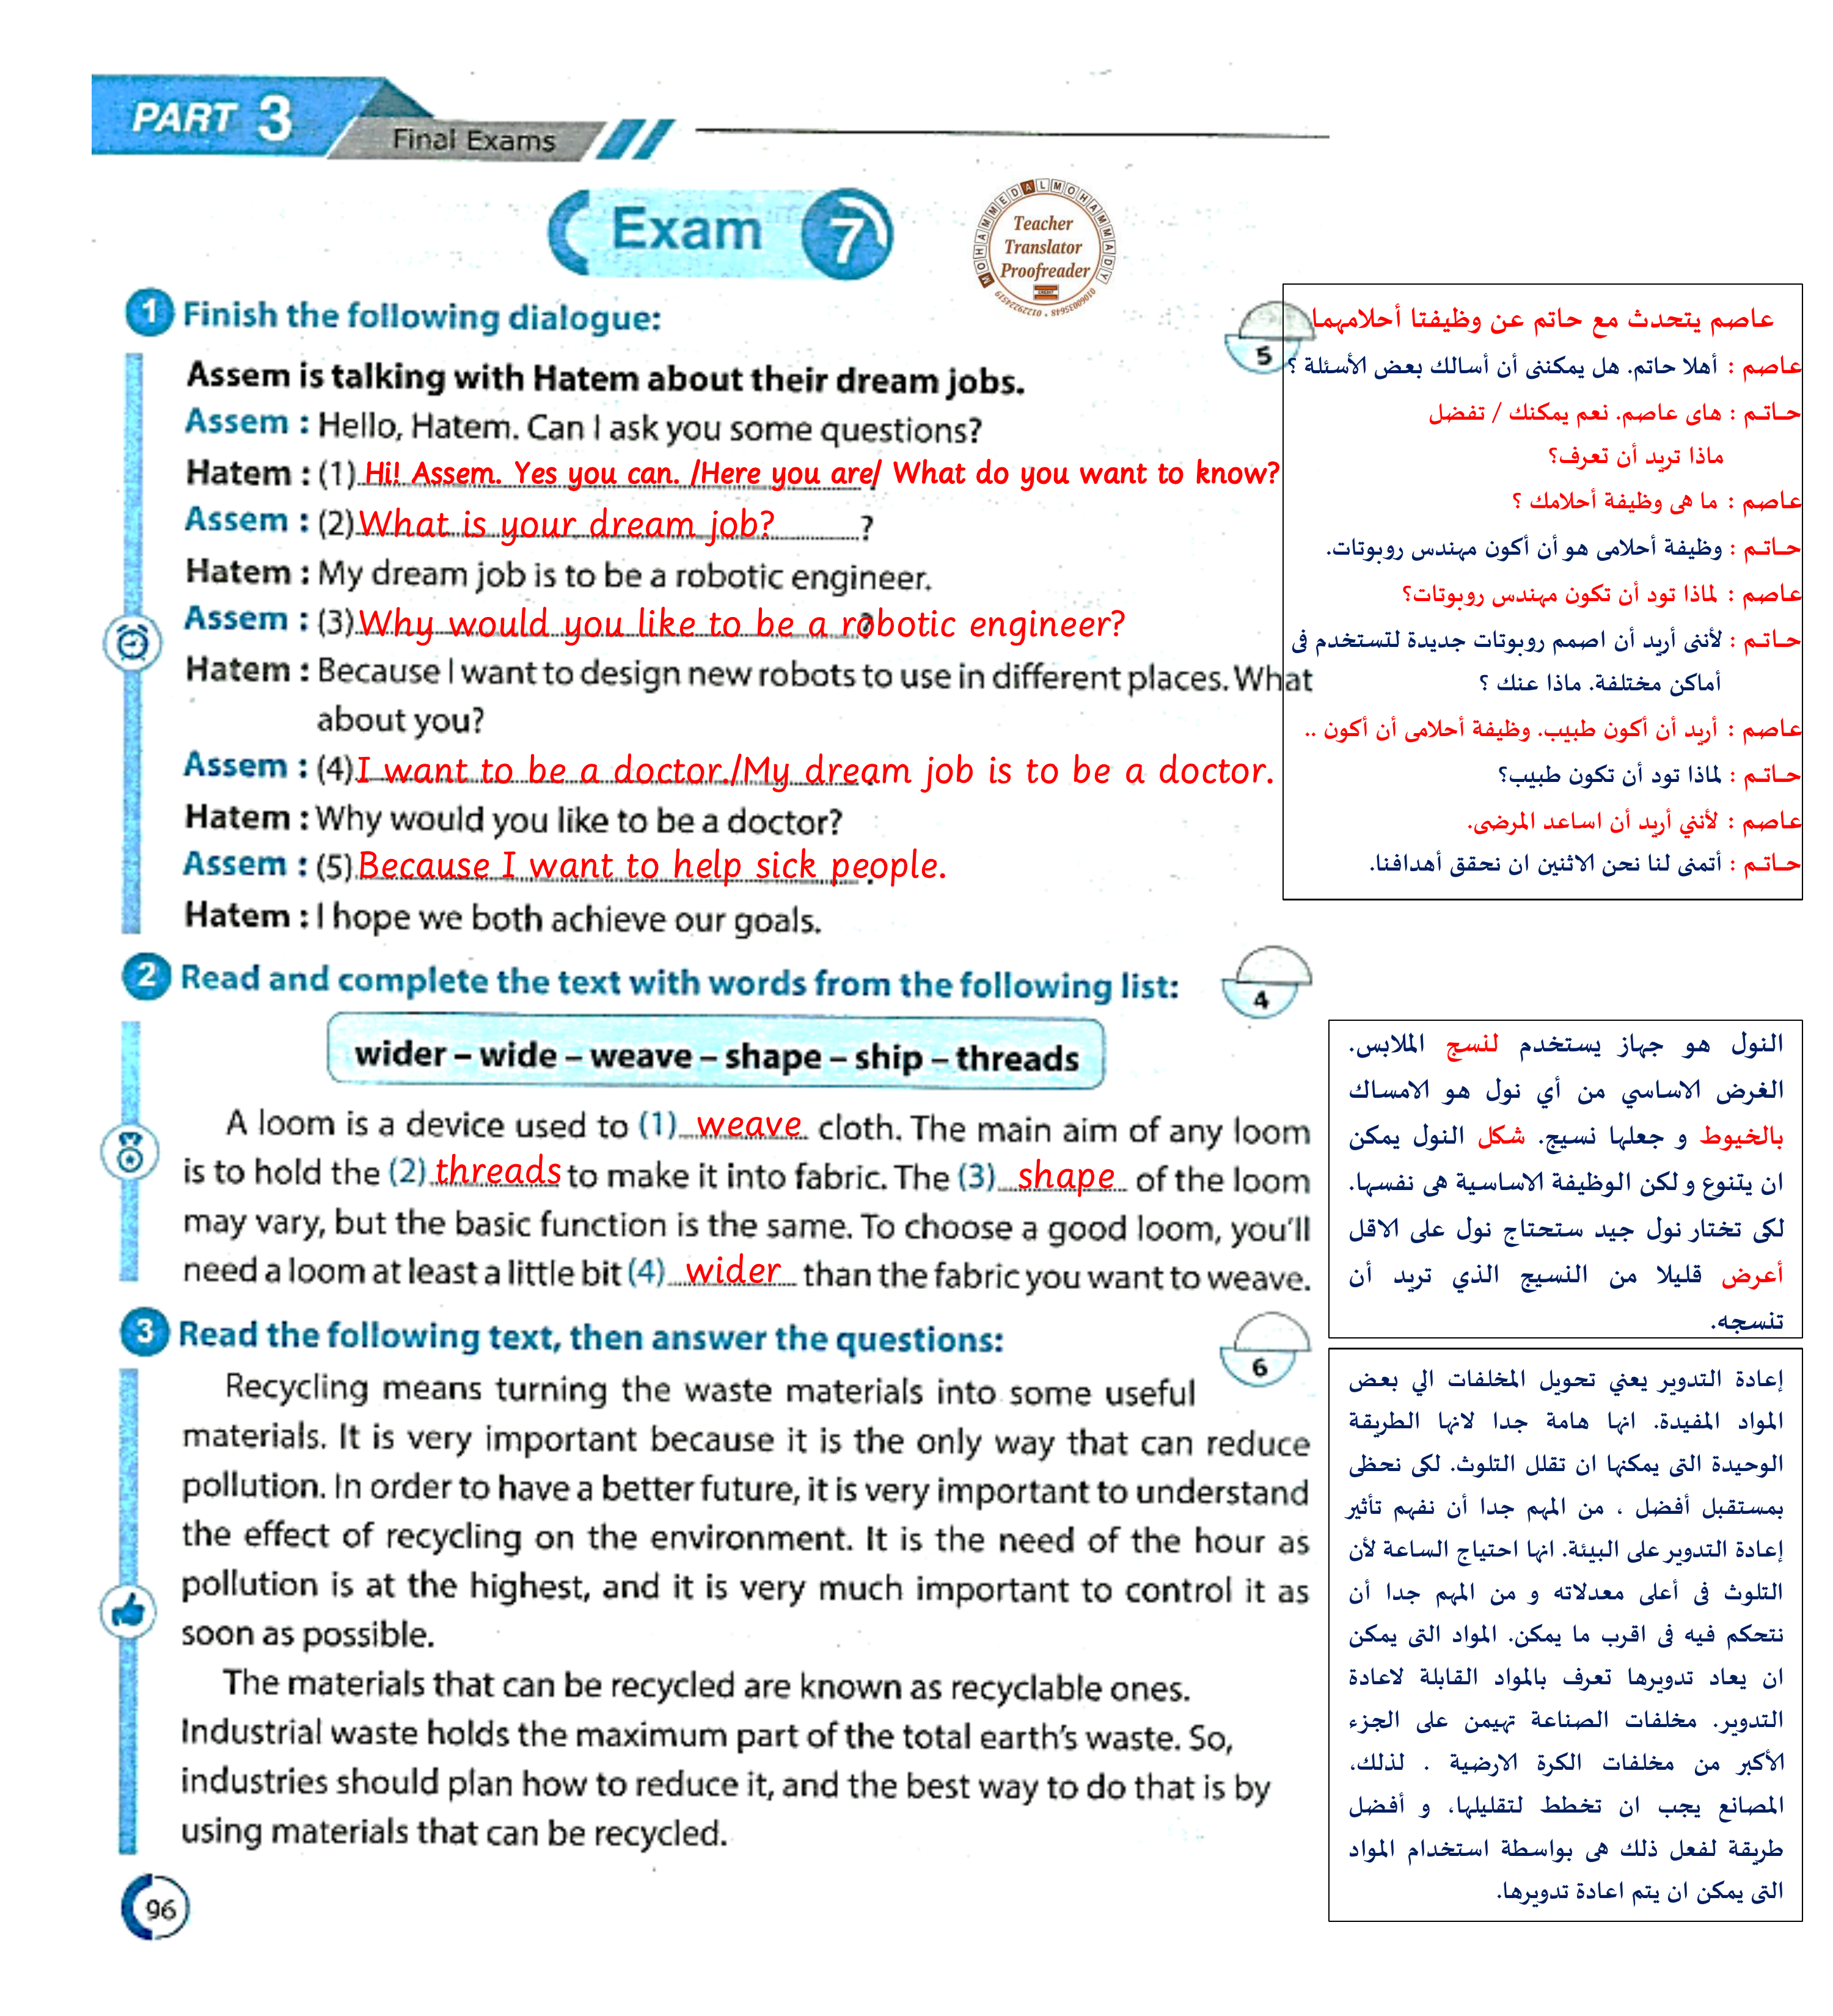 PART 3
Final Exams
Exam 7
MOHAMMED ALMOHAMMADY
Teacher
Translator
Proofreader
1 Finish the following dialogue:
5
Assem is talking with Hatem about their dream jobs.
Assem : Hello, Hatem. Can I ask you some questions?
Hatem : (1) Hi! Assem. Yes you can. /Here you are/ What do you want to know?
Assem : (2) What is your dream job? ?
Hatem : My dream job is to be a robotic engineer.
Assem : (3) Why would you like to be a robotic engineer?
Hatem : Because I want to design new robots to use in different places. What
about you?
Assem : (4) I want to be a doctor./My dream job is to be a doctor.
Hatem : Why would you like to be a doctor?
Assem : (5) Because I want to help sick people.
Hatem : I hope we both achieve our goals.
عاصم يتحدث مع حاتم عن وظيفتا أحلامهما
عاصم : أهلا حاتم. هل يمكننى أن أسالك بعض الأسئلة ؟
حـاتـم : هاى عاصم. نعم يمكنك / تفضل
ماذا تريد أن تعرف؟
عاصم : ما هى وظيفة أحلامك ؟
حـاتـم : وظيفة أحلامى هو أن أكون مهندس روبوتات.
عاصم : لماذا تود أن تكون مهندس روبوتات؟
حـاتـم : لأننى أريد أن اصمم روبوتات جديدة لتستخدم فى
أماكن مختلفة. ماذا عنك ؟
عاصم : أريد أن أكون طبيب. وظيفة أحلامى أن أكون ..
حـاتـم : لماذا تود أن تكون طبيب؟
عاصم : لأنني أريد أن اساعد المرضى.
حـاتـم : أتمنى لنا نحن الاثنين ان نحقق أهدافنا.
2 Read and complete the text with words from the following list:
4
wider – wide – weave – shape – ship – threads
A loom is a device used to (1) weave cloth. The main aim of any loom
is to hold the (2) threads to make it into fabric. The (3) shape of the loom
may vary, but the basic function is the same. To choose a good loom, you'll
need a loom at least a little bit (4) wider than the fabric you want to weave.
النول هو جهاز يستخدم لنسج الملابس.
الغرض الاساسي من أي نول هو الامساك
بالخيوط و جعلها نسيج. شكل النول يمكن
ان يتنوع و لكن الوظيفة الاساسية هى نفسها.
لكى تختار نول جيد ستحتاج نول على الاقل
أعرض قليلا من النسيج الذي تريد أن
تنسجه.
3 Read the following text, then answer the questions:
6
Recycling means turning the waste materials into some useful
materials. It is very important because it is the only way that can reduce
pollution. In order to have a better future, it is very important to understand
the effect of recycling on the environment. It is the need of the hour as
pollution is at the highest, and it is very much important to control it as
soon as possible.
The materials that can be recycled are known as recyclable ones.
Industrial waste holds the maximum part of the total earth's waste. So,
industries should plan how to reduce it, and the best way to do that is by
using materials that can be recycled.
إعادة التدوير يعني تحويل المخلفات الي بعض
المواد المفيدة. انها هامة جدا لانها الطريقة
الوحيدة التى يمكنها ان تقلل التلوث. لكى نحظى
بمستقبل أفضل ، من المهم جدا أن نفهم تأثير
إعادة التدوير على البيئة. انها احتياج الساعة لأن
التلوث فى أعلى معدلاته و من المهم جدا أن
نتحكم فيه فى اقرب ما يمكن. المواد التى يمكن
ان يعاد تدويرها تعرف بالمواد القابلة لاعادة
التدوير. مخلفات الصناعة تهيمن على الجزء
الأكبر من مخلفات الكرة الارضية . لذلك،
المصانع يجب ان تخطط لتقليلها، و أفضل
طريقة لفعل ذلك هى بواسطة استخدام المواد
التى يمكن ان يتم اعادة تدويرها.
96